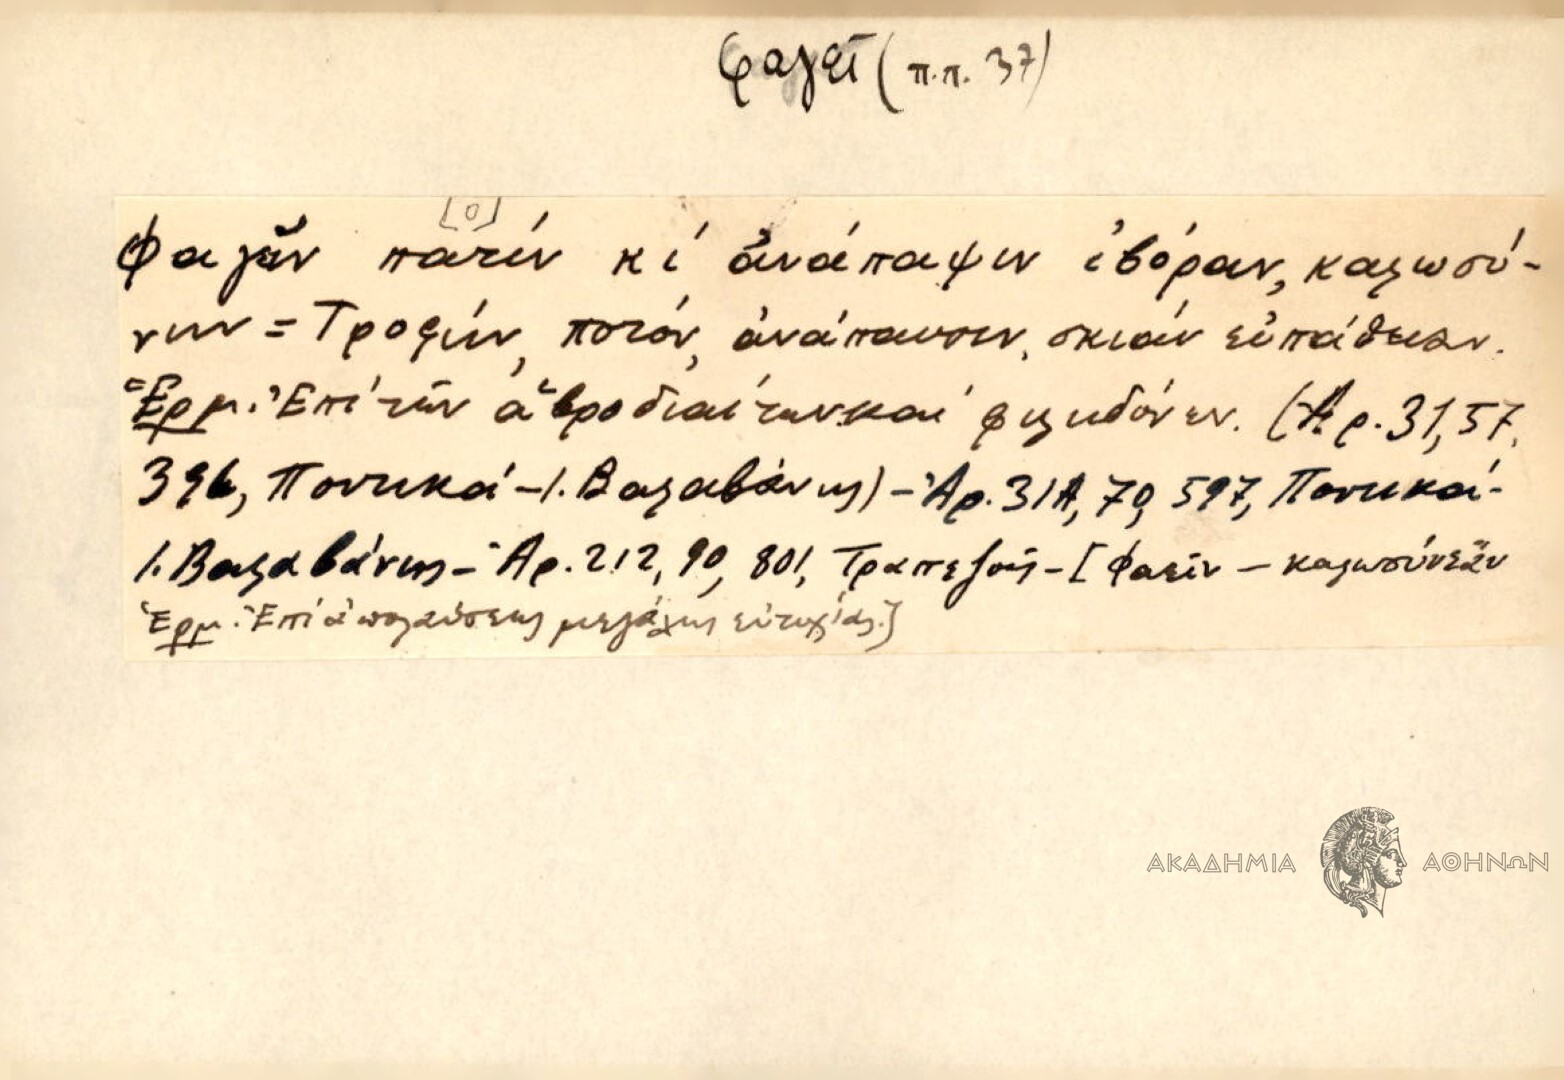 φαγεῖ (π.π. 37)
[ο]
Φαγεῖν πατίν κί ἀνάπαψιν ἐβόραν, καλωσύ-
νην = Τροφήν, ποτόν, ἀνάπαυσιν, σκιάν εὐπάθειαν.
Ἑρμ. Ἐπί τῶν ἁβροδιαίτων καί φιληδόνων. (Ἀρ. 31, 57,
396, Ποντικά - Ι. Βαλαβάνης) - Ἀρ. 31Α, 70, 597, Ποντικά -
Ι. Βαλαβάνης - Ἀρ. 212, 90, 801, Τραπεζοῦς - [Φαεῖν - καλωσύνεαν
Ἑρμ. Ἐπί ἀπολαύσεως μεγάλης εὐτυχίας.]
ΑΚΑΔΗΜΙΑ ΑΘΗΝΩΝ